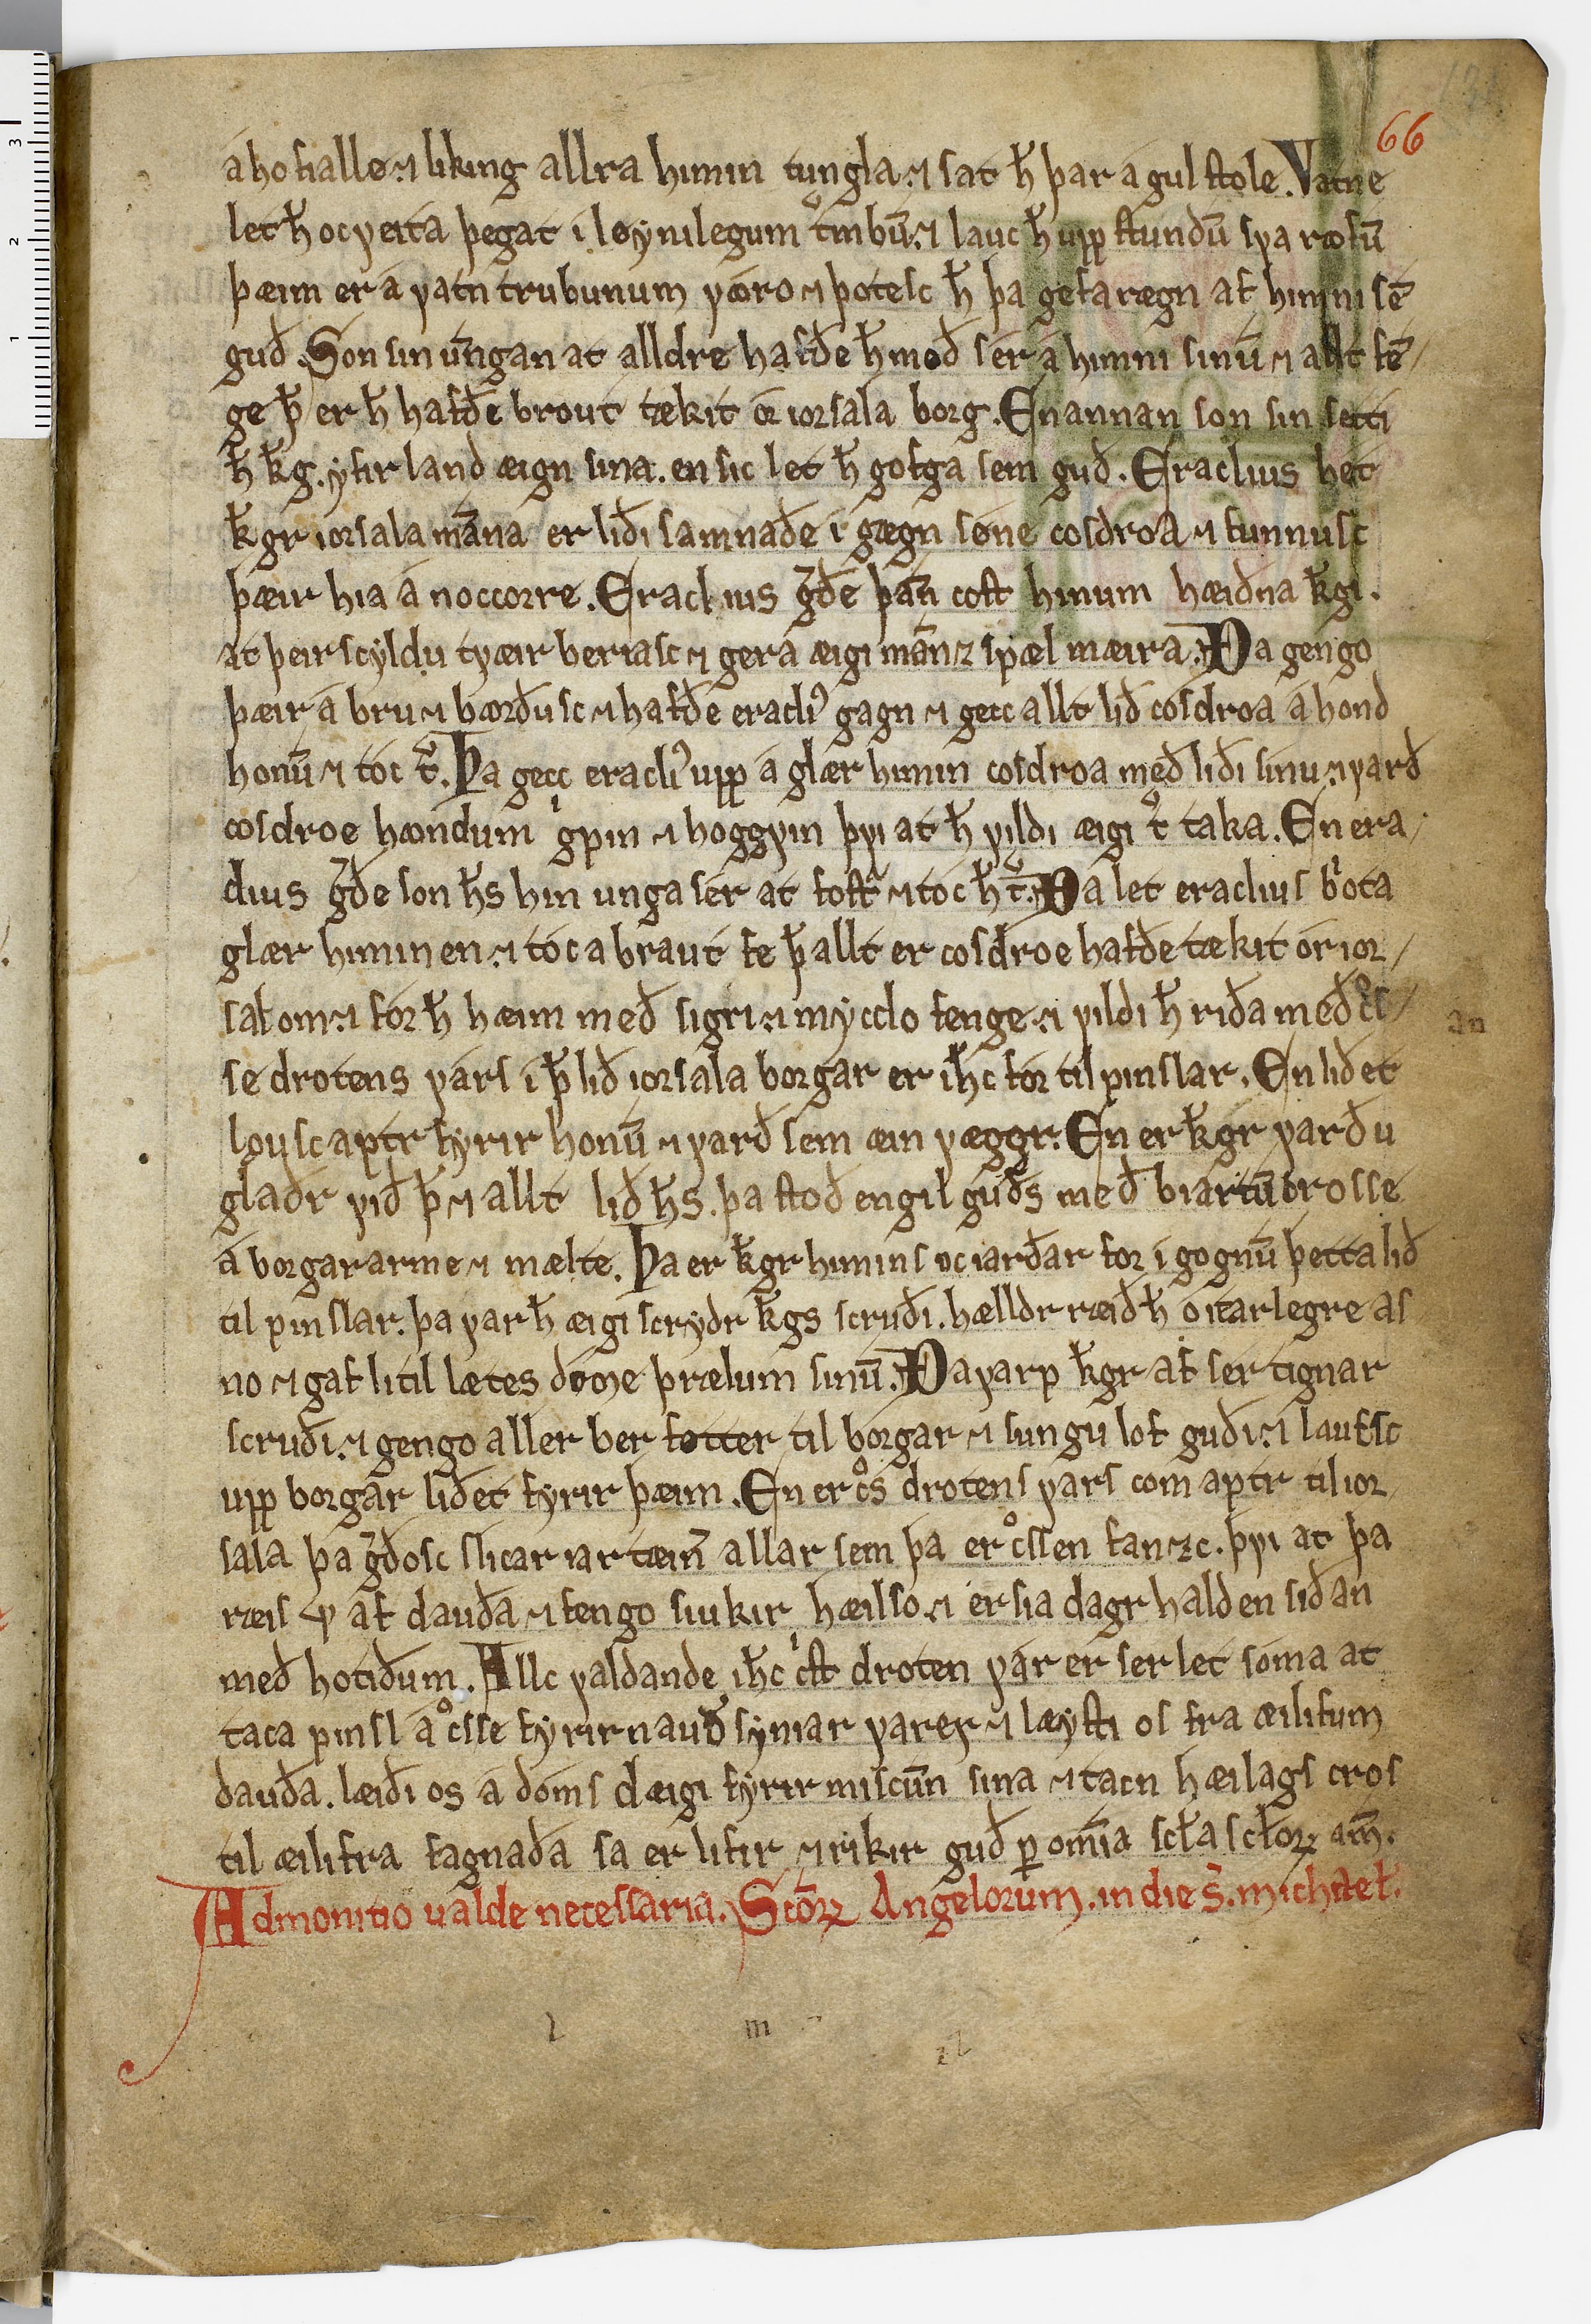 66
a ho fiallo ⁊ liking allra himin tungla ⁊ sat h̅ þar a gul stole. Vatne
let h̅ oc ꝩeita þegat i løynilegum tͦmbū. ⁊ lauc h̅ upp stundū sꝩa rœfū
þæim er a ꝩatn trubunum ꝩǫro ⁊ þotesc h̅ þa gefa rægn af himni sē
guð. Son sin ūngan at alldre hafðe h̅ með ser a himni sinū ⁊ allt fē-
ge þ̅ er h̅ hafðe brout tækit ór iorsala borg. En annan son sin setti
h̅ k̅g. yfir land æign sina. en sic let h̅ gofga sem guð. Eraclius het
k̅gr iorsala māna er liði samnaðe i gægn søne cosdroa ⁊ funnusc
þæir hia á noccorre. Eraclius g̅ðe þān cost hinum hæiðna k̅gi.
at þeir scyldu tꝩæir beriasc ⁊ gera æigi mānz spæl mæira. Þa gengo
þæir a bru ⁊ bœrðusc ⁊ hafðe eracliꝰ gagn ⁊ gecc allt lið cosdroa a hond
honū ⁊ toc t͛. Þa gecc eracliꝰ upp a glær himin cosdroa með liði sinu ⁊ ꝩarð
cosdroe hœndum gͥpin ⁊ hoggꝩin þꝩi at h̅ ꝩildi æigi tͦ taka. En era-
clius g̅ðe son h̅s hin unga ser at fostͬ ⁊ toc h̅ t͛. Þa let eraclius bͥota
glær himin en. ⁊ toc a braut fe þ̅ allt er cosdroe hafðe tækit ór ior-
salom. ⁊ fór h̅ hæim með sigri ⁊ mycclo fenge. ⁊ ꝩildi h̅ riða með cͦs-
se drotens ꝩárs i þ̅ lið iorsala borgar er ih̅c fór til pinslar. En liðet
lousc aptr fyrir honū ⁊ ꝩarð sem æin ꝩæggr. En er k̅gr ꝩarð u
glaðr ꝩið þ̅ ⁊ allt lið h̅s. þa stoð engil guðs með biartū crosse
a borgar arme ⁊ mælte. Þa er k̅gr himins oc iarðar for i gognū þetta lið
til pinslar. þa ꝩar h̅ æigi scrydr k̅gs scruði. hælldr ræið h̅ óitarlegre as
no ⁊ gaf litil lætes dǿme þrælum sinū. Þa ꝩarp k̅gr af ser tignar
scruði. ⁊ gengo aller ber føtter til borgar ⁊ sungu lof guði. ⁊ laucsc
upp borgar liðet fyrir þæim. En er cͦs drotens ꝩars com aptr til ior
sala þa g̅ðosc slicar iar tæin̅ allar sem þa er cͦssen fanzc. þꝩi at þa
ræis ᛘ af dauða ⁊ fengo siukir hæilso. ⁊ er sia dagr halden siðan
með hotiðum. Allc ꝩaldande ih̅c cͥst droten ꝩár er ser let soma at
taca pinsl a cͦsse fyrir nauðsyniar ꝩarer ⁊ læysti os fra æilifum
dauða. læiði os a doms dægi fyrir miscūn sina ⁊ tacn hæilags cros
til æilifra fagnaða sa er lifir ⁊ rikir guð ꝑ om̅ia scl̅a scl̅oꝝ am̅.
Admonitio ualde necessaria. Scōꝝ Angelorum. in die s̅. michael̅.
an